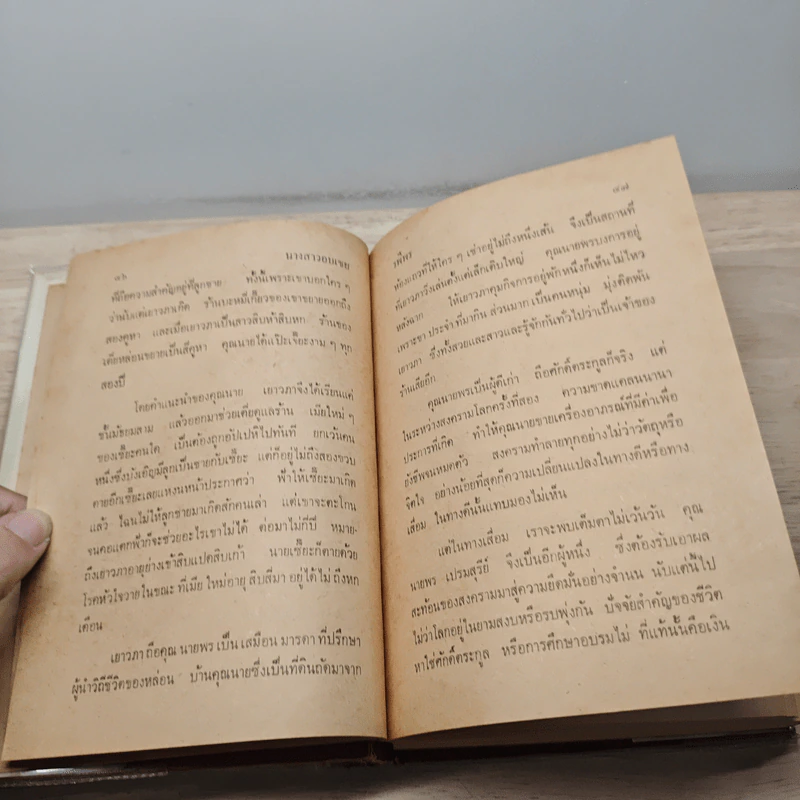 ๘๖ นางสาวอบเชย
ที่ถือความสำคัญอยู่ที่ลูกชาย ทั้งนี้เพราะเขาบอกใคร ๆ
ว่านับแต่เยาวภาเกิด ร้านบะหมี่เกี๊ยวของเขาขายออกถึง
สองคูหา และเมื่อเยาวภาเป็นสาวสิบห้าสิบหก ร้านของ
เตี่ยหล่อนขยายเป็นสี่คูหา คุณนายได้แป๊ะเจี๊ยะงาม ๆ ทุก
สองปี
โดยคำแนะนำของคุณนาย เยาวภาจึงได้เรียนแค่
ชั้นมัธยมสาม แล้วออกมาช่วยเตี่ยดูแลร้าน เมียใหม่ ๆ
ของเซี๊ยะคนใด เป็นต้องถูกอัปเปหิไปทันที ยกเว้นคน
หนึ่งซึ่งบังเอิญมีลูกเป็นชายกับเซี๊ยะ แต่ก็อยู่ไม่ถึงสองขวบ
ตายอีกเซี๊ยะเลยแหงนหน้าประกาศว่า ฟ้าให้เซี๊ยะมาเกิด
แล้ว ไฉนไม่ให้ลูกชายมาเกิดสักคนเล่า แต่เขาจะตะโกน
จนคอแตกฟ้าก็จะช่วยอะไรเขาไม่ได้ ต่อมาไม่กี่ปี หมาย-
ถึงเยาวภาอายุย่างเข้าสิบแปดสิบเก้า นายเซี๊ยะก็ตายด้วย
โรคหัวใจวายในขณะ ที่เมีย ใหม่อายุ สิบสี่มา อยู่ได้ ไม่ ถึงหก
เดือน
เยาวภา ถือคุณ นายพร เป็น เสมือน มารดา ที่ปรึกษา
ผู้นำวิถีชีวิตของหล่อน บ้านคุณนายซึ่งเป็นที่ดินถัดมาจาก
รพีพร ๘๗
ห้องแถวที่ให้ใคร ๆ เช่าอยู่ไม่ถึงหนึ่งเส้น จึงเป็นสถานที่
ที่เยาวภาวิ่งเล่นตั้งแต่เล็กเติบใหญ่ คุณนายพรบงการอยู่
หลังฉาก ให้เยาวภาคุมกิจการอยู่พักหนึ่งก็เห็นไม่ไหว
เพราะขา ประจำ ที่มากิน ส่วนมาก เป็นคนหนุ่ม มุ่งติดพัน
เยาวภา ซึ่งทั้งสวยและสาวและรู้จักกันทั่วไปว่าเป็นเจ้าของ
ร้านเสียอีก
คุณนายพรเป็นผู้ดีเก่า ถือศักดิ์ตระกูลก็จริง แต่
ในระหว่างสงครามโลกครั้งที่สอง ความขาดแคลนนานา
ประการที่เกิด ทำให้คุณนายขายเครื่องอาภรณ์ที่มีค่าเพื่อ
ยังชีพจนหมดตัว สงครามทำลายทุกอย่างไม่ว่าวัตถุหรือ
จิตใจ อย่างน้อยที่สุดก็ความเปลี่ยนแปลงในทางดีหรือทาง
เสื่อม ในทางดีนั้นแทบมองไม่เห็น
แต่ในทางเสื่อม เราจะพบเต็มตาไม่เว้นวัน คุณ
นายพร เปรมสุรีย์ จึงเป็นอีกผู้หนึ่ง ซึ่งต้องรับเอาผล
สะท้อนของสงครามมาสู่ความยึดมั่นอย่างจำนน นับแต่นี้ไป
ไม่ว่าโลกอยู่ในยามสงบหรือรบพุ่งกัน ปัจจัยสำคัญของชีวิต
หาใช่ศักดิ์ตระกูล หรือการศึกษาอบรมไม่ ที่แท้นั้นคือเงิน